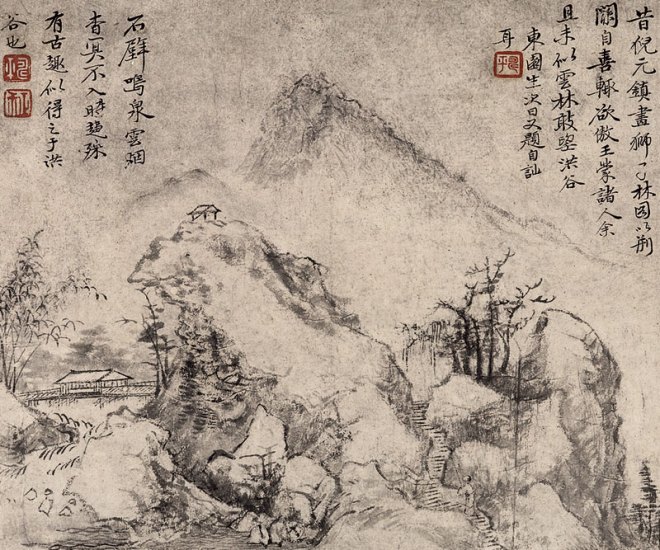 昔倪元鎮畫獅子林園以荊
關自喜輒欲傲王蒙諸人余
且未似雲林敢望洪谷
耳
東園生次日又題自訕
石壁鳴泉雲烟
杳冥不入時趨殊
有古趣似得之于洪
谷也